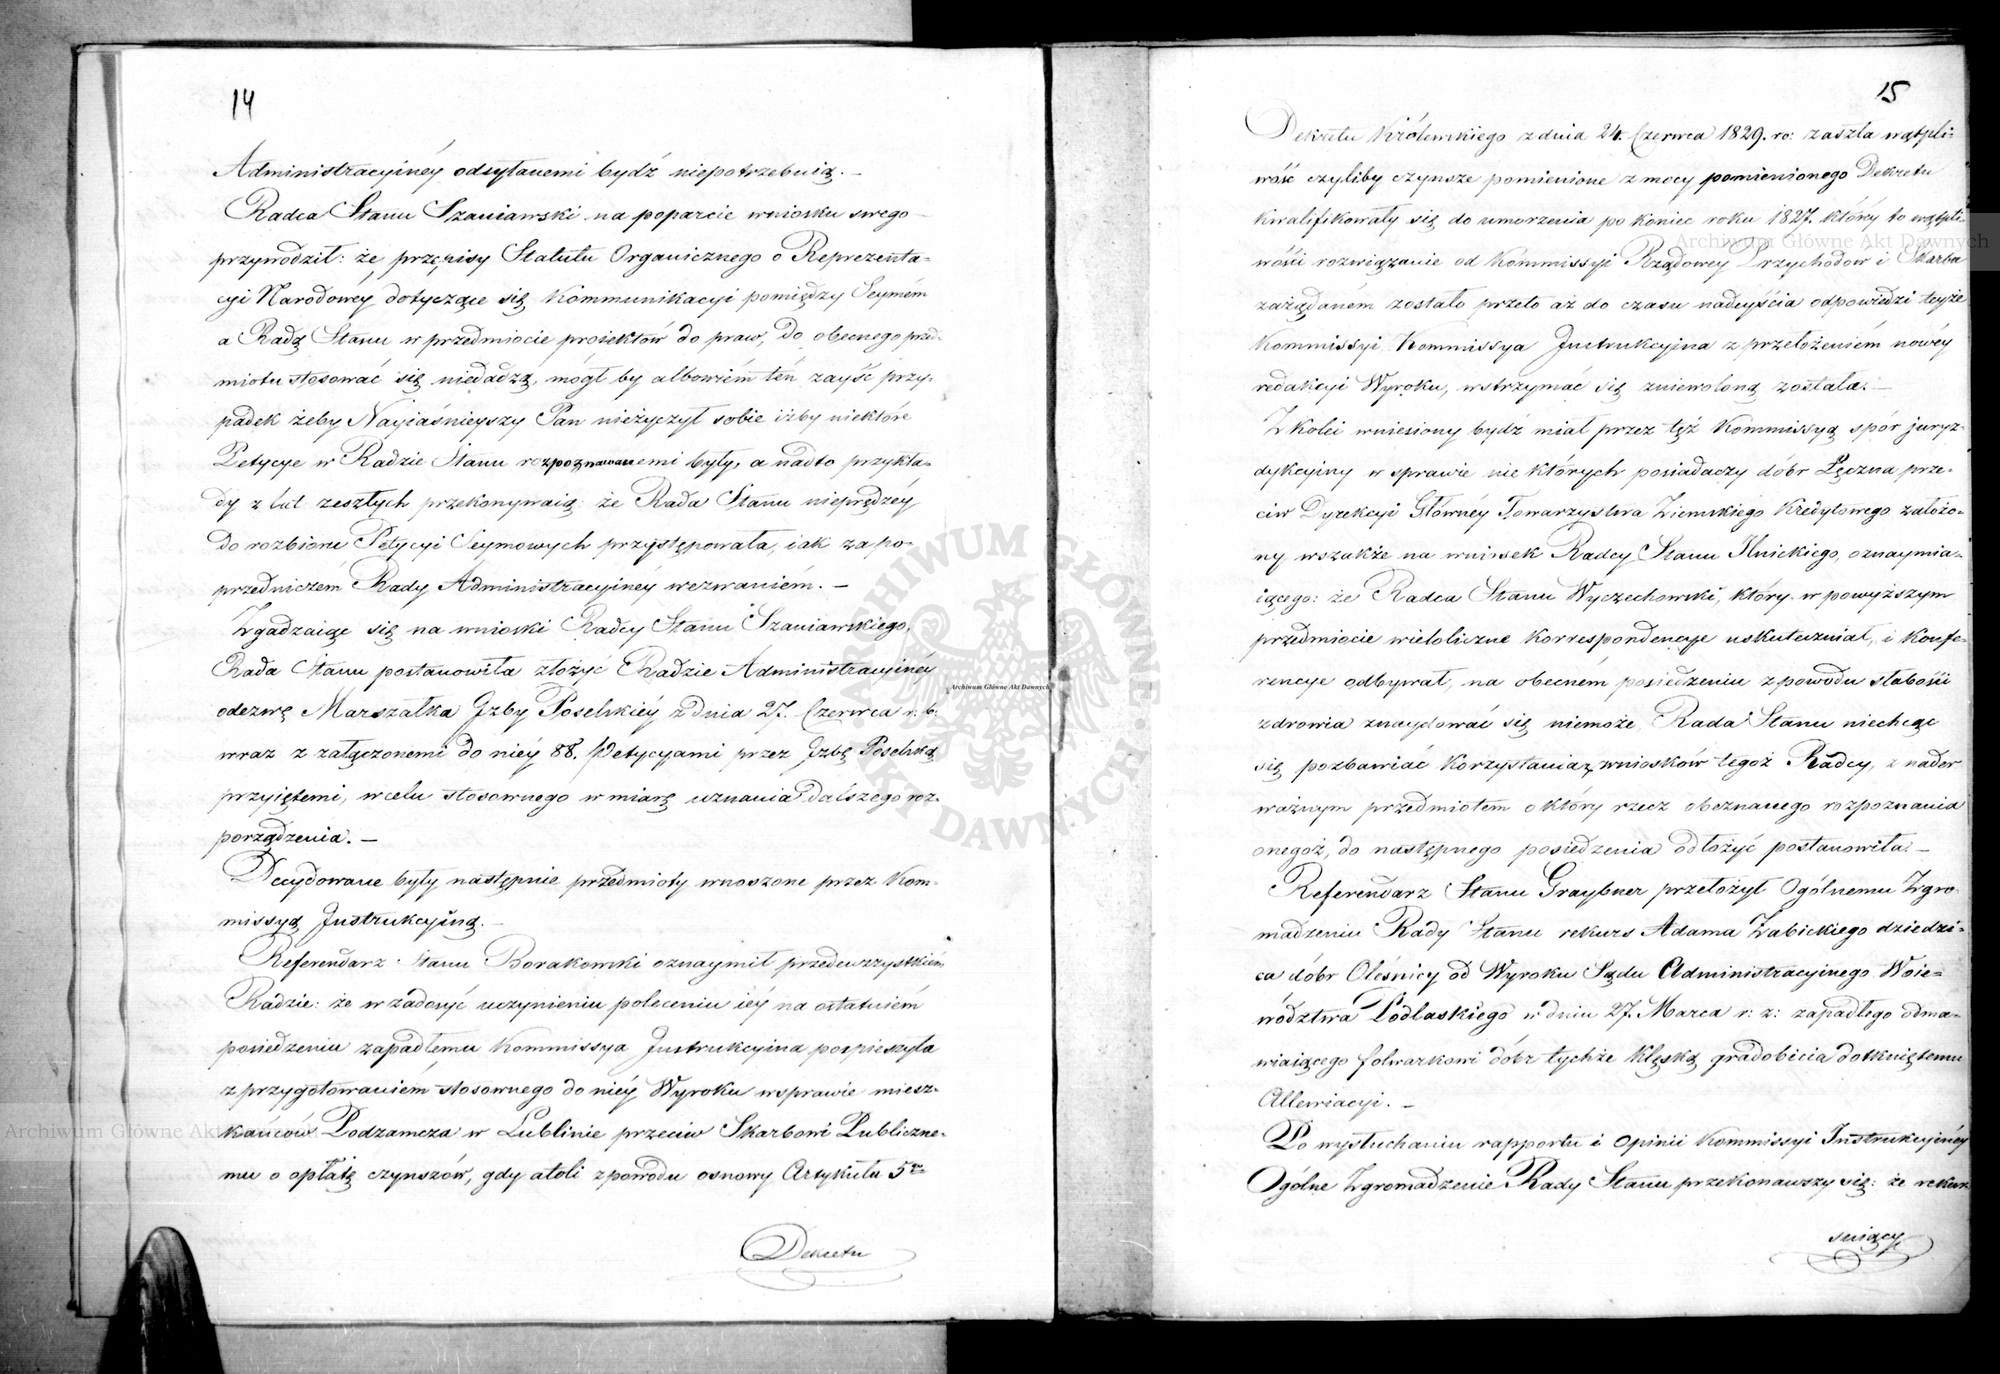 14
Administracyinéy odsyłanemi bydź niepotrzebuią. —
Radca Stanu Szaniawski na poparcie wniosku swego
przywodził: że przepisy Statutu Organicznego o Reprezenta-
cyi Narodowéy dotyczące się Kommunikacyi pomiędzy Seymém
a Radą Stanu w przedmiocie proiektów do praw, do obecnego przed-
miotu stosować się niedadzą, mógł by albowiem ten zayść przy-
padek żeby Nayiaśnieyszy Pan nieżyczył sobie iżby niektóre
Petycye w Radzie Stanu rozpoznawanemi były, a nadto przykła-
dy z lat zeszłych przekonywaią: że Rada Stanu nieprędzéy
do rozbioru Petycyi Seymowych przystępowała, iak za po-
przedniczém Rady Administracyinéy wezwaniém. —
Zgadzaiąc się na wnioski Radcy Stanu Szaniawskiego,
Rada Stanu postanowiła złożyć Radzie Administracyinéy
odezwę Marszałka Izby Poselskiéy z dnia 27. Czerwca r. b.
wraz z załączonemi do niéy 88. Petycyami przez Izbę Poselską
przyiętemi, w celu stosownego w miarę uznania dalszego roz-
porządzenia. —
Decydowane były następnie przedmioty wnoszone przez Kom-
missyą Instrukcyiną. —
Referendarz Stanu Borakowski oznaymił przedewszystkiém
Radzie: że w zadosyć uczynieniu poleceniu iéy na ostatniém
posiedzeniu zapadłemu Kommissya Instrukcyina pospieszyła
z przygotowaniem stosownego do niéy Wyroku w sprawie miesz-
kańców Podzamcza w Lublinie przeciw Skarbowi Publiczne-
mu o opłatę czynszów, gdy atoli z powodu osnowy Artykułu 5go
Dekretu
15
Dekretu Królewskiego z dnia 24. Czerwca 1829. ro: zaszła wątpli-
wość czyliby czynsze pomienione z mocy pomienionego Dekretu
kwalifikowały się do umorzenia po koniec roku 1827. któréy to wątpli-
wości rozwiązanie od Kommissyi Rządowéy Przychodów i Skarbu
zażądaném zostało przeto aż do czasu nadeyścia odpowiedzi teyże
Kommissyi, Kommissya Instrukcyina z przełożeniém nowéy
redakcyi Wyroku, wstrzymać się zniewoloną została. —
Z kolei wniesiony bydź miał przez tęż Kommissyą spór juryz-
dykcyiny w sprawie niektórych posiadaczy dóbr Łęczna prze-
ciw Dyrekcyi Głównéy Towarzystwa Ziemskiego Kredytowego założo-
ny wszakże na wniosek Radcy Stanu Ilnickiego, oznaymia-
iącego: że Radca Stanu Wyczechowski, który w powyższym
przedmiocie wieloliczne korrespondencye uskuteczniał, i konfe-
rencye odbywał, na obecném posiedzeniu z powodu słabości
zdrowia znaydować się niemoże, Rada Stanu niechcąc
się pozbawiać korzystania z wniosków tegoż Radcy, z nader
ważnym przedmiotem o który rzecz obeznanego rozpoznania
onegoż, do następnego posiedzenia odłożyć postanowiła. —
Referendarz Stanu Graybner przełożył Ogólnemu Zgro-
madzeniu Rady Stanu rekurs Adama Zabickiego dziedzi-
ca dóbr Oleśnicy od Wyroku Sądu Administracyinego Woie-
wództwa Podlaskiego w dniu 27. Marca r: z: zapadłego odma-
wiaiącego folwarkowi dóbr tychże klęską gradobicia dotkniętemu
Allewiacyi. —
Po wysłuchaniu rapportu i opinii Kommissyi Instrukcyinéy
Ogólne Zgromadzenie Rady Stanu przekonawszy się: że rekur-
suiący
Archiwum Główne Akt Dawnych